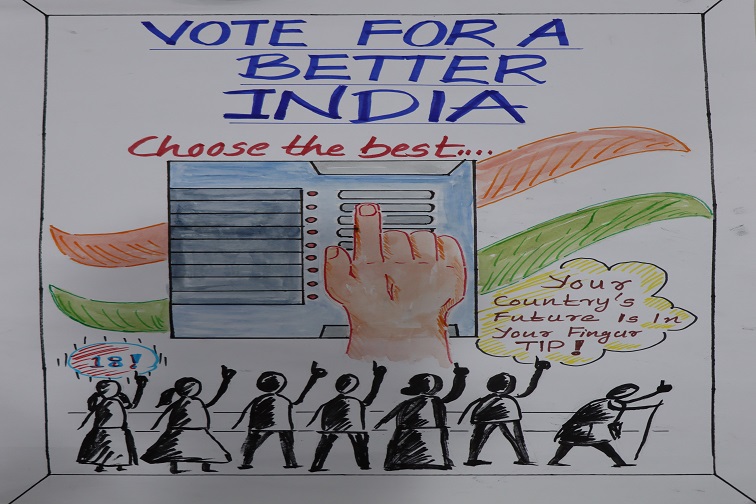 VOTE FOR A
BETTER
INDIA
Choose the best....
Your
Country's
Future Is In
Your Fingur
TIP!
18!